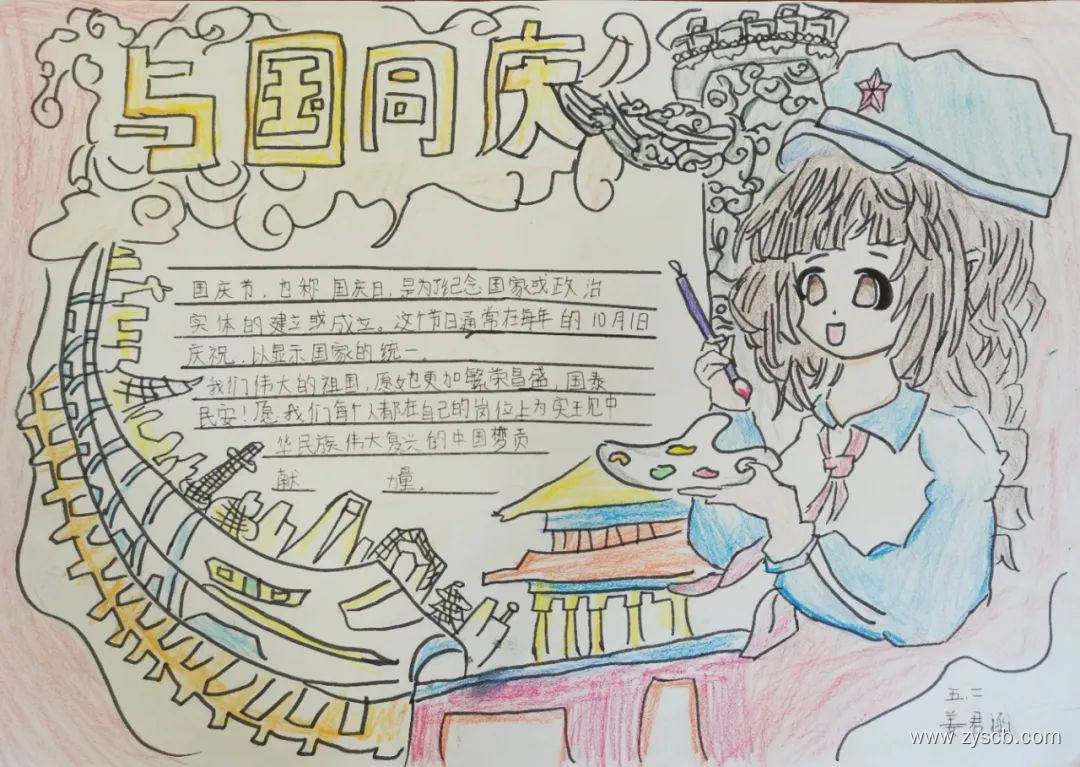 与国同庆
国庆节，也称国庆日，是为了纪念国家或政治
实体的建立或成立。这个节日通常在每年的10月1日
庆祝，以显示国家的统一。
我们伟大的祖国，愿她更加繁荣昌盛，国泰
民安！愿我们每个人都在自己的岗位上为实现中
华民族伟大复兴的中国梦贡
献 力量。
五.二
姜君涵
www.zyscb.com